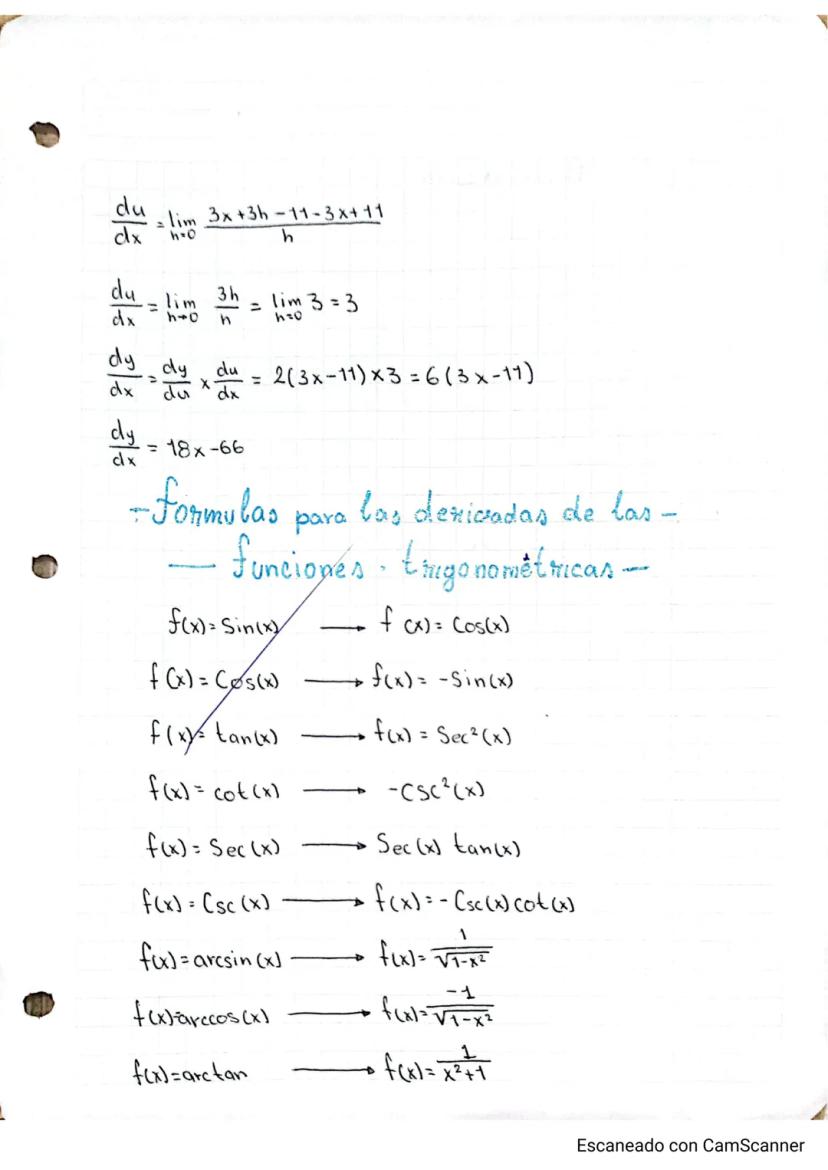 du/dx = lim h=0 (3x+3h-11-3x+11)/h
du/dx = lim h→0 3h/h = lim h=0 3 = 3
dy/dx = dy/du × du/dx = 2(3x-11)×3 = 6(3x-11)
dy/dx = 18x-66
-formulas para las derivadas de las-
— funciones . trigonométricas —
f(x)=Sin(x) → f (x)= Cos(x)
f(x)=Cos(x) → f(x)= -Sin(x)
f(x)= tan(x) → f(x) = Sec²(x)
f(x)= cot(x) → -CSC²(x)
f(x)= Sec(x) → Sec(x) tan(x)
f(x)= Csc(x) → f(x)=- Csc(x)cot(x)
f(x)=arcsin(x) → f(x)= 1/√1-x²
f(x)=arccos(x) → f(x)= -1/√1-x²
f(x)=arctan → f(x)= 1/x²+1
Escaneado con CamScanner